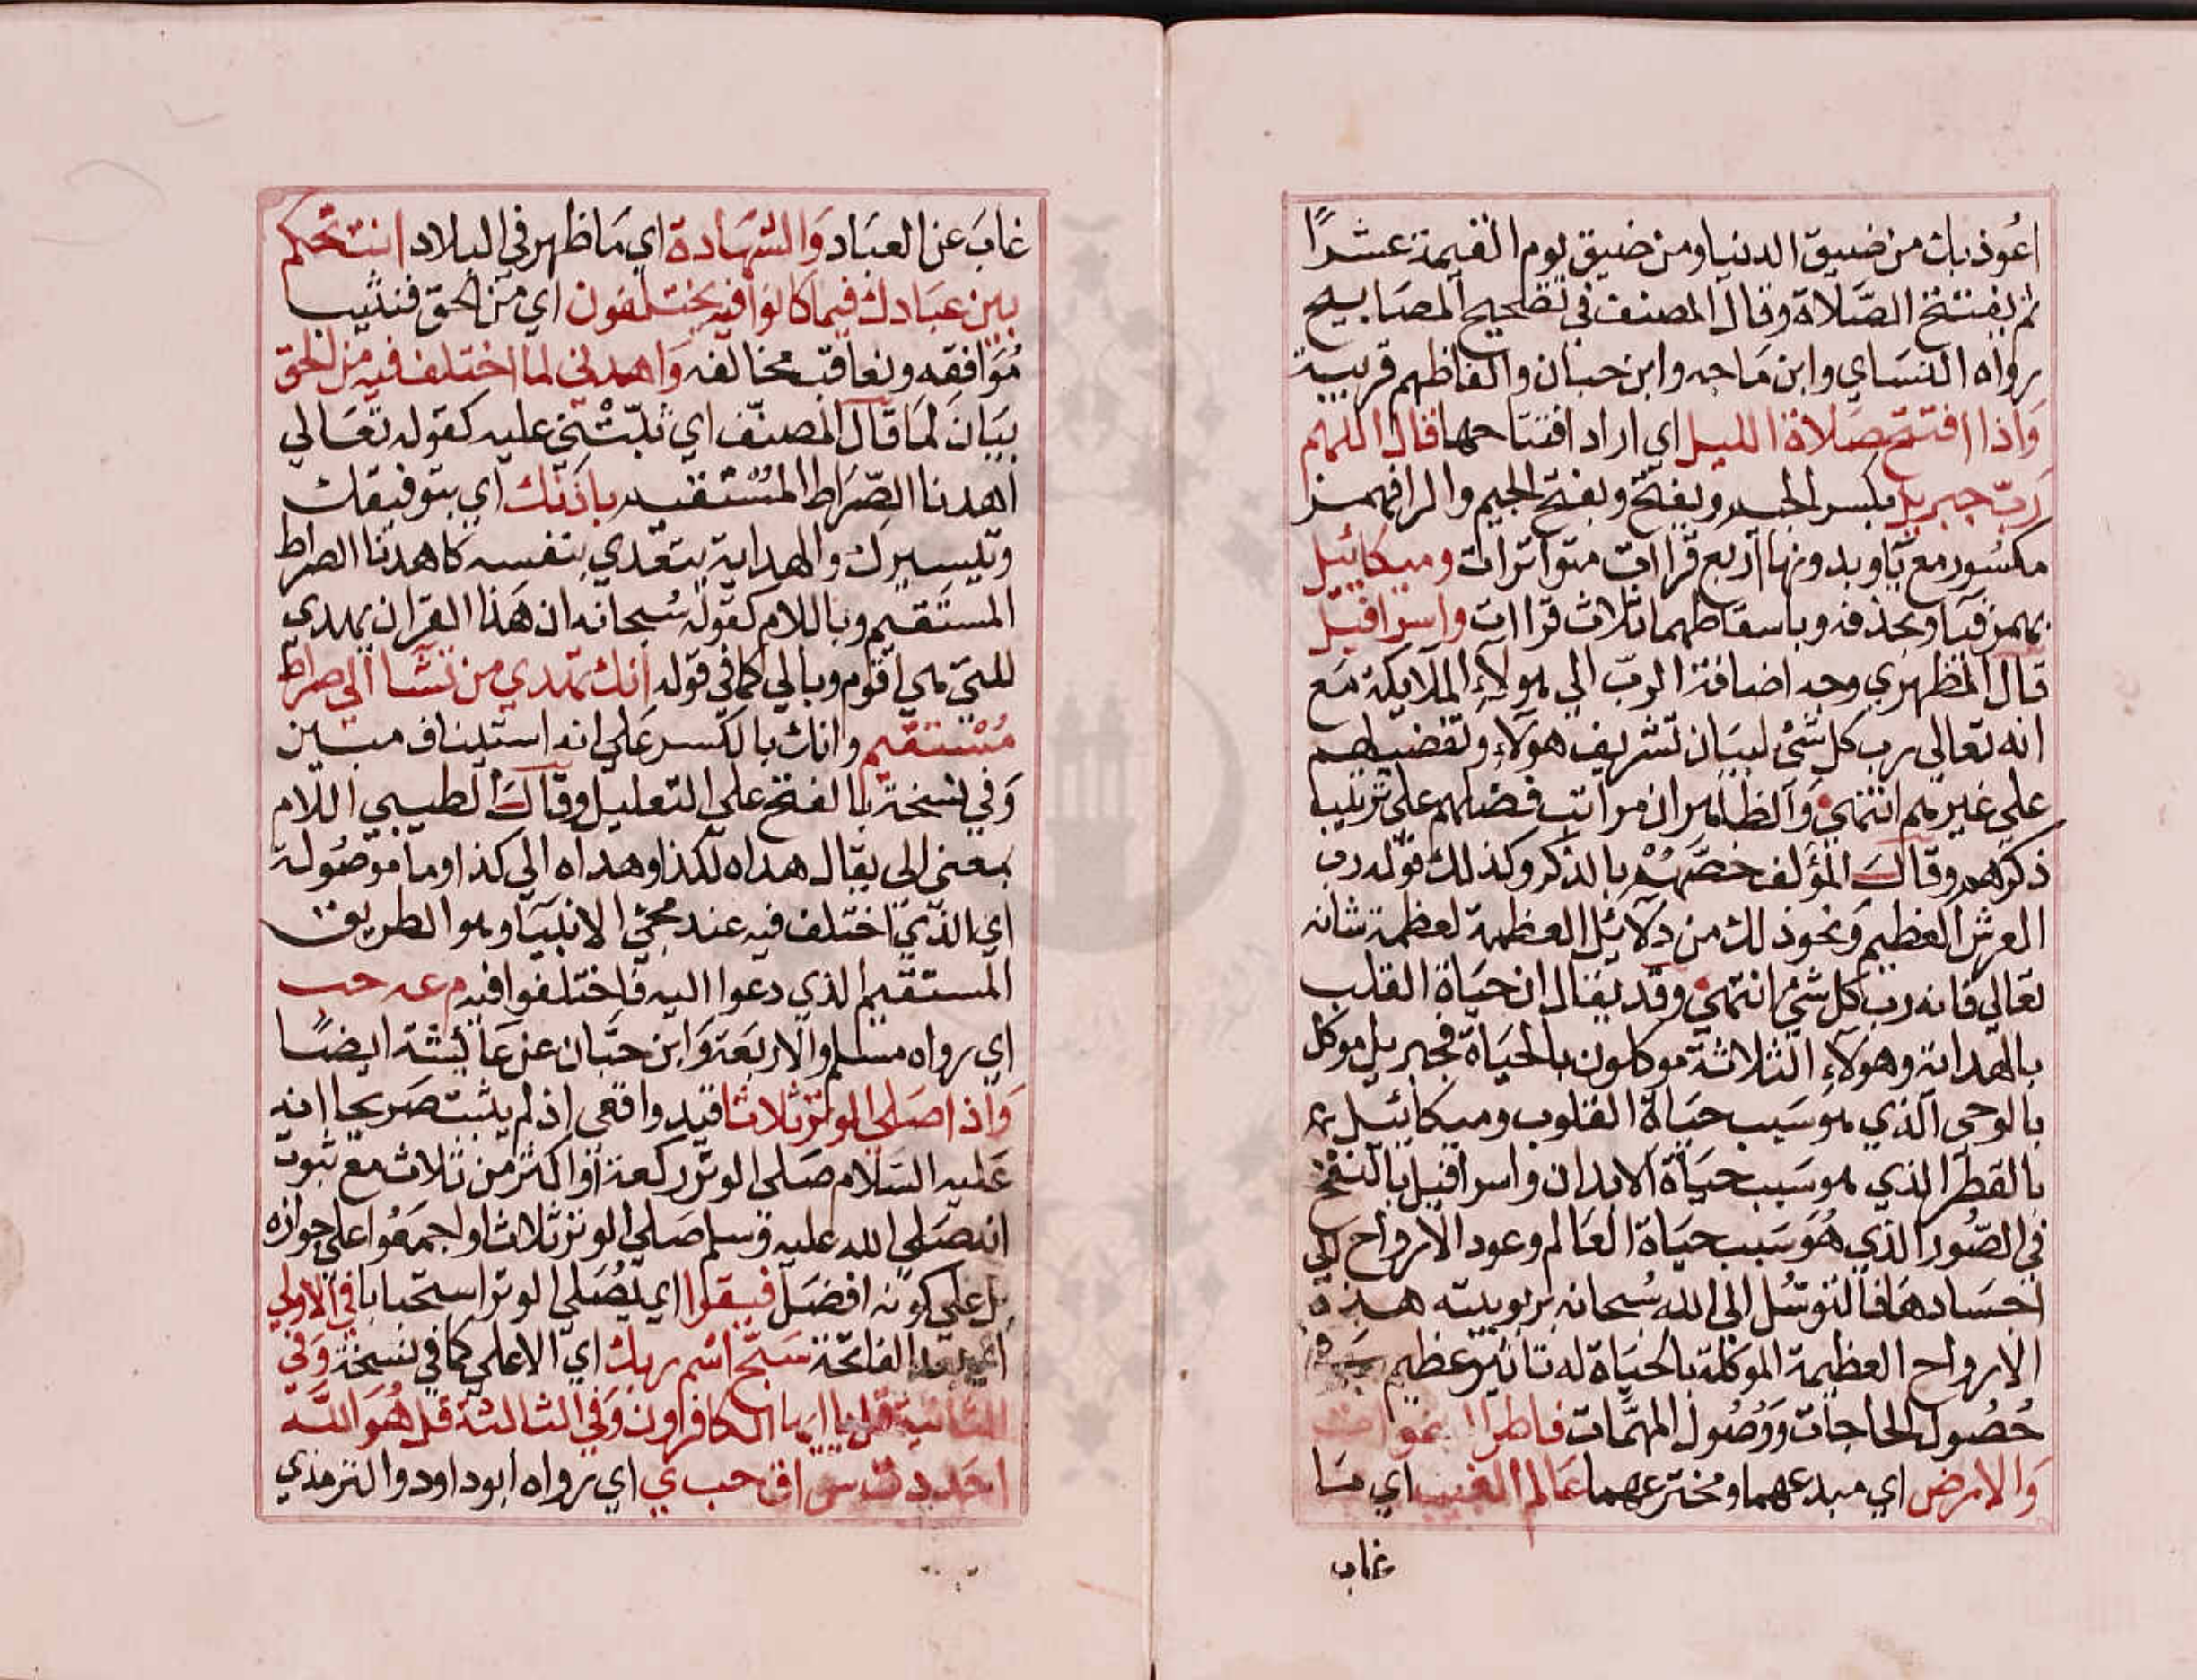 اعوذ بك من ضيق الدنيا ومن ضيق يوم القيمة عشرًا
ثم يفتتح الصلاة وقال المصنف في تصحيح المصابيح
رواه النساي وابن ماجه وابن حبان والفاظهم قريبة
واذا افتتح صلاة الليل اي اراد افتتاحها قال اللهم
رب جبريل بكسر الجيم وبفتح وبفتح الجيم والرا فهمز
مكسور مع يا وبدونها اربع قراات متواترات وميكائيل
بهمز فيا وبحذفه وباسقاطهما ثلاث قراات واسرافيل
قال المظهري وجه اضافة الرب الي هولاء الملايكة مع
انه تعالي رب كل شئ لبيان تشريف هولاء وتفضيلهم
علي غيرهم انتهي والظاهر ان مراتب فضلهم علي ترتيب
ذكرهم وقال المؤلف خصهم بالذكر وكذلك قوله رب
العرش العظيم ونحو ذلك من دلائل العظمة لعظمة شانه
تعالي فانه رب كل شئ انتهي وقد يقال ان حياة القلب
بالهداية وهولاء الثلاثة موكلون بالحياة فجبريل موكل
بالوحي الذي هو سبب حياة القلوب وميكائيل
بالقطر الذي هو سبب حياة الابدان واسرافيل بالنفخ
في الصور الذي هو سبب حياة العالم وعود الارواح الي
اجسادها فالتوسل الي الله سبحانه بربوبيته هذه
الارواح العظيمة الموكلة بالحياة له تاثير عظيم في
حصول الحاجات ووصول المهمات فاطر السموات
والارض اي مبدعهما ومخترعهما عالم الغيب اي ما
غاب
غاب عن العباد والشهادة اي ما ظهر في البلاد انت تحكم
بين عبادك فيما كانوا فيه يختلفون اي من الحق فنثيب
موافقه ونعاقب مخالفه واهدني لما اختلف فيه من الحق
بيان لما قال المصنف اي ثبتني عليه كقوله تعالي
اهدنا الصراط المستقيم باذنك اي بتوفيقك
وتيسيرك والهداية يتعدي بنفسه كاهدنا الصراط
المستقيم وباللام كقوله سبحانه ان هذا القران يهدي
للتي هي اقوم وبالي كما في قوله انك تهدي من تشا الي صراط
مستقيم وانك بالكسر علي انه استيناف مبين
وفي نسخة بالفتح علي التعليل وقال الطيبي اللام
بمعني الي يقال هداه لكذا وهداه الي كذا وما موصولة
اي الذي اختلف فيه عند مجئ الانبيا وهو الطريق
المستقيم الذي دعوا اليه فاختلفوا فيه م عه حب
اي رواه مسلم والاربعة وابن حبان عن عائشة ايضا
واذا صلي الوتر ثلاثا قيد واقعي اذ لم يثبت صريحا انه
عليه السلام صلي الوتر ركعة او اكثر من ثلاث مع ثبوت
انه صلي الله عليه وسلم صلي الوتر ثلاثا واجمعوا علي جوازه
بل علي كونه افضل فيقرا اي يصلي الوتر استحبابا في الاولي
اي بعد الفاتحة سبح اسم ربك اي الاعلي كما في نسخة وفي
الثانية قل يا ايها الكافرون وفي الثالثة قل هو الله
احد د ت س ق حب ي اي رواه ابوداود والترمذي